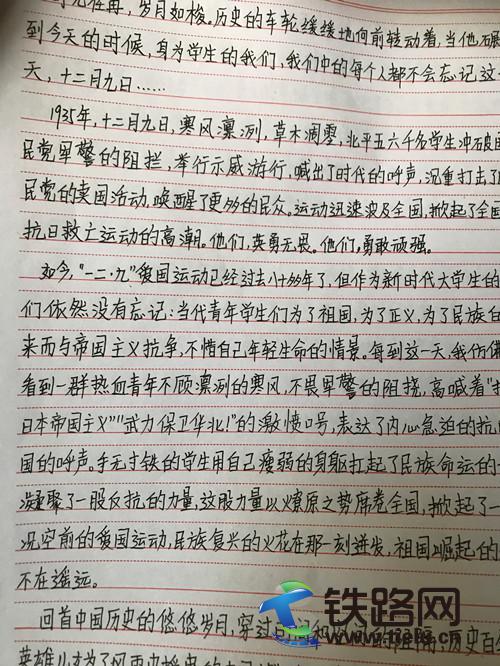 光荏苒，岁月如梭。历史的车轮缓缓地向前转动着，当他碾
到今天的时候，身为学生的我们，我们中的每个人都不会忘记这
天，十二月九日……
1935年，十二月九日，寒风凛冽，草木凋零，北平五六千名学生冲破
民党军警的阻拦，举行示威游行，喊出了时代的呼声，沉重打击了
民党的卖国活动，唤醒了更多的民众。运动迅速波及全国，掀起了全国
抗日救亡运动的高潮。他们，英勇无畏。他们，勇敢顽强。
如今，"一二·九"爱国运动已经过去八十余年了，但作为新时代大学生的
们依然没有忘记：当代青年学生们为了祖国，为了正义，为了民族
来而与帝国主义抗争，不惜自己年轻生命的情景。每到这一天，我仿佛
看到一群热血青年不顾凛冽的寒风，不畏军警的阻挠，高喊着"
日本帝国主义""武力保卫华北！"的激愤口号，表达了内心急迫的抗
国的呼声。手无寸铁的学生用自己瘦弱的身躯扛起了民族命运的
凝聚了一股反抗的力量，这股力量以燎原之势席卷全国，掀起了一
况空前的爱国运动，民族复兴的火花在那一刻迸发，祖国崛起的
不在遥远。
回首中国历史的悠悠岁月，穿过
铁路网